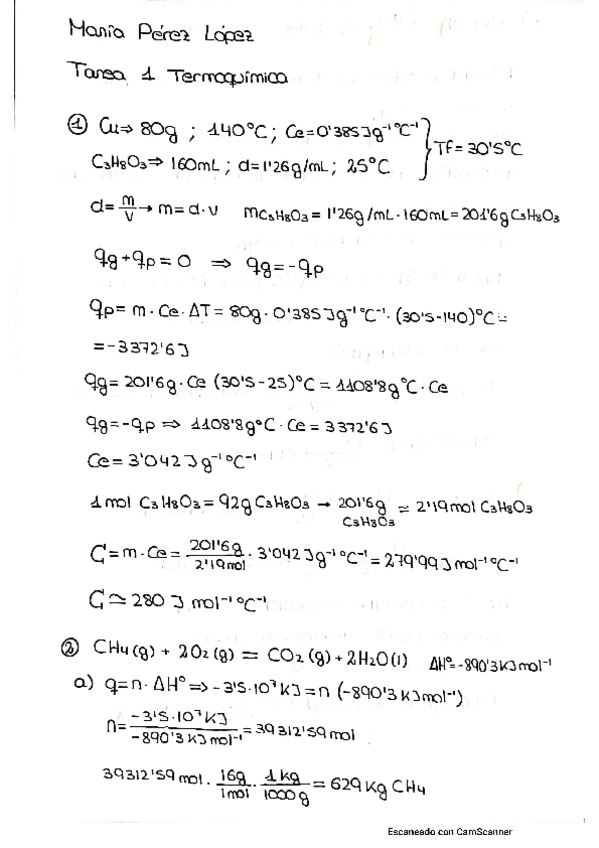 María Pérez López
Tarea 1 Termoquímica
① Cu⇒ 80g ; 140°C ; Ce=0'385Jg⁻¹°C⁻¹
C₃H₈O₃⇒ 160mL ; d=1'26g/mL ; 25°C } Tf= 30'5°C
d= m/v → m=d·v mC₃H₈O₃= 1'26g/mL·160mL=201'6g C₃H₈O₃
qg+qp=0 ⇒ qg=-qp
qp= m·Ce·ΔT= 80g·0'385Jg⁻¹°C⁻¹·(30'5-140)°C=
=-3372'6J
qg= 201'6g·Ce (30'5-25)°C = 1108'8g°C·Ce
qg=-qp ⇒ 1108'8g°C·Ce = 3372'6J
Ce= 3'042Jg⁻¹°C⁻¹
1mol C₃H₈O₃= 92g C₃H₈O₃ → 201'6g C₃H₈O₃ ≃ 2'19mol C₃H₈O₃
C=m·Ce= 201'6g/2'19mol · 3'042Jg⁻¹°C⁻¹=279'99Jmol⁻¹°C⁻¹
C≃280 J mol⁻¹°C⁻¹
② CH₄(g) + 2O₂(g) = CO₂(g)+2H₂O(l) ΔH°=-890'3KJmol⁻¹
a) q=n·ΔH° ⇒ -3'5·10⁷KJ=n (-890'3KJmol⁻¹)
n= -3'5·10⁷KJ/-890'3KJmol⁻¹ =39312'59mol
39312'59mol · 16g/1mol · 1kg/1000g = 629Kg CH₄
Escaneado con CamScanner